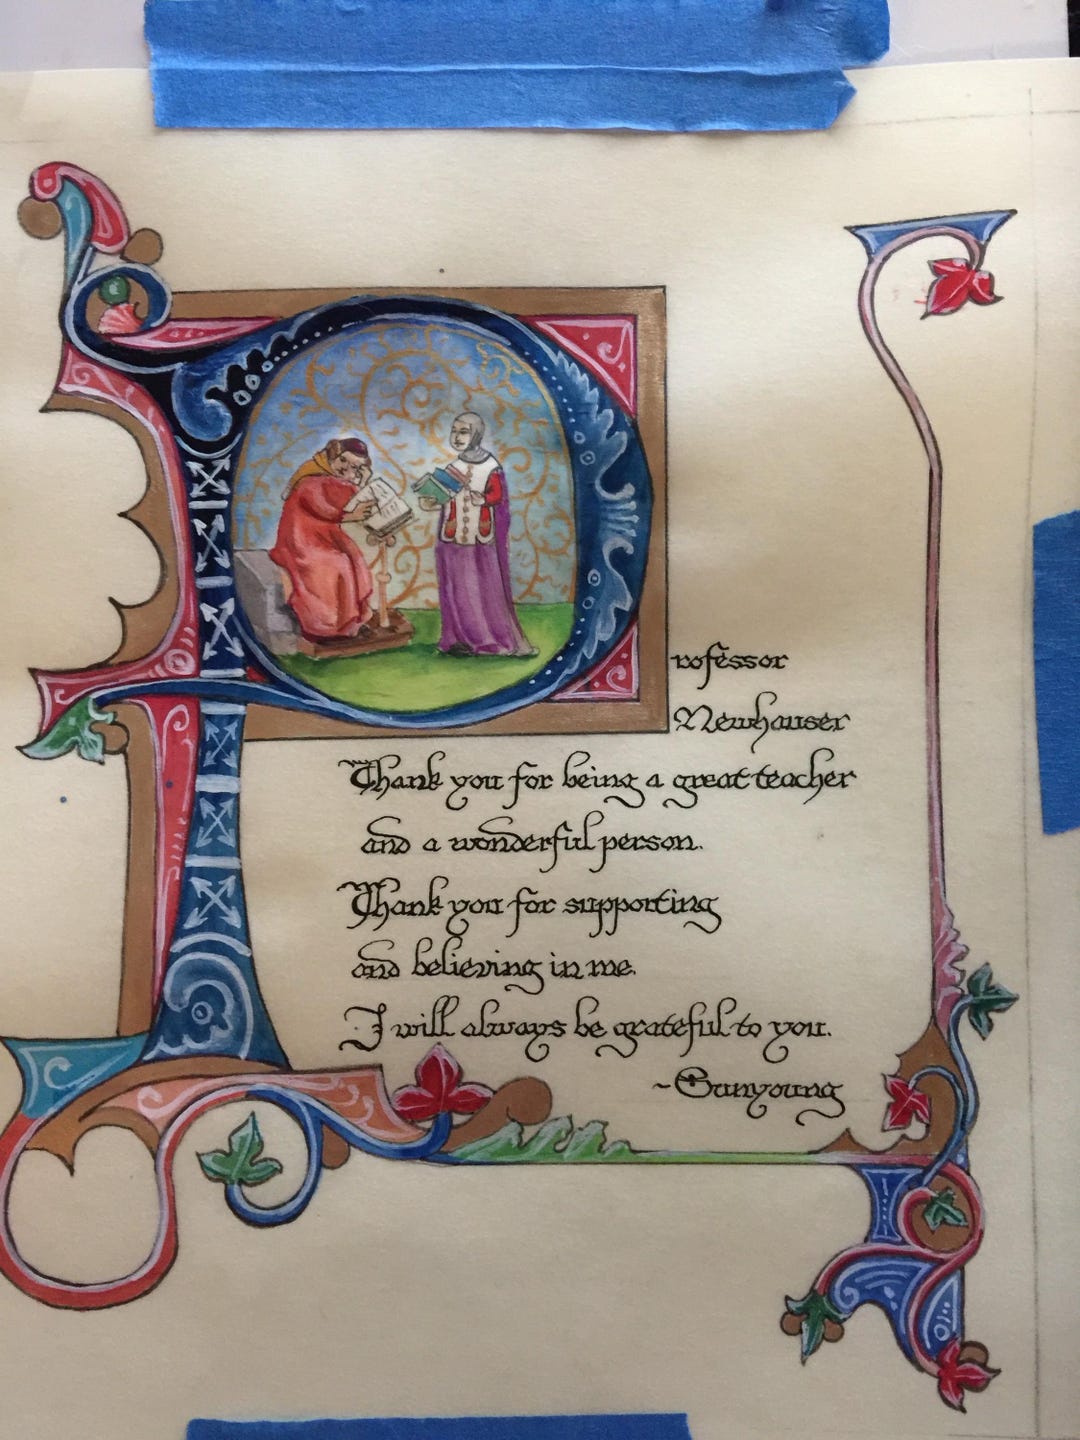 Professor
Newhauser
Thank you for being a great teacher
and a wonderful person.
Thank you for supporting
and believing in me.
I will always be grateful to you.
~Sunyoung